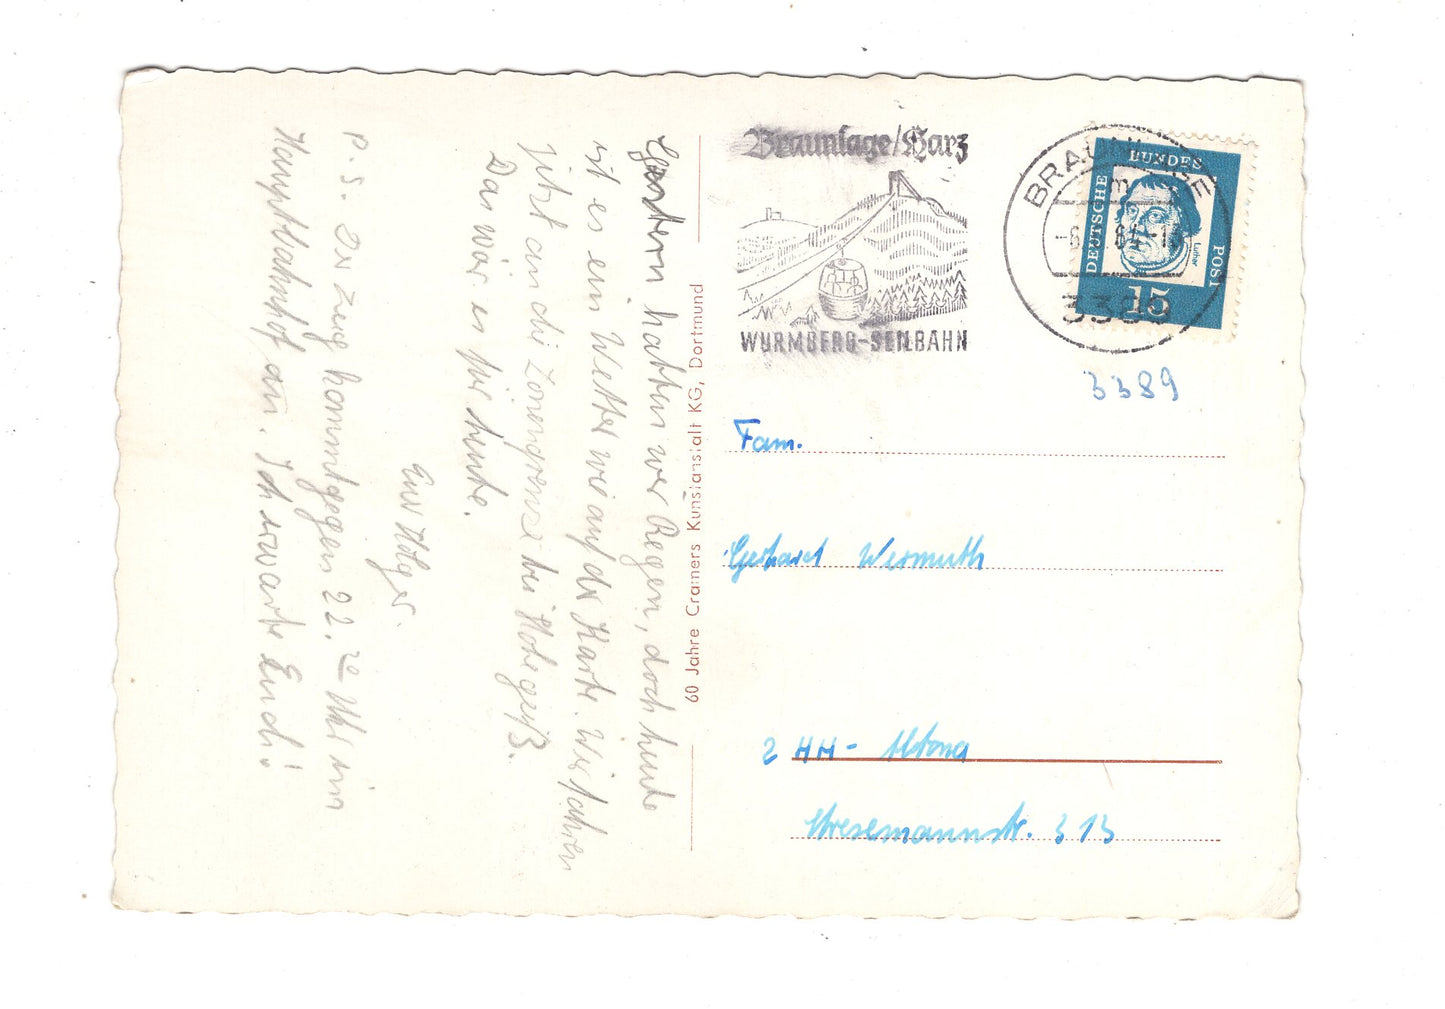 Gestern hatten wir Regen, doch heute
ist es ein Wetter wie auf der Karte. Wir fahren
jetzt an die Zonengrenze bei Hohegeiß.
Das wär es für heute.
Euer Holger.
P.S. Der Zug kommt gegen 22.20 Uhr im
Hauptbahnhof an. Ich erwarte Euch!
60 Jahre Cramers Kunstanstalt KG, Dortmund
Braunlage/Harz
WURMBERG-SEILBAHN
BRAUNLAGE
3389
DEUTSCHE BUNDESPOST
Luther
15
3389
Fam.
Gerhard Wermuth
2 HH - Altona
Stresemannstr. 313